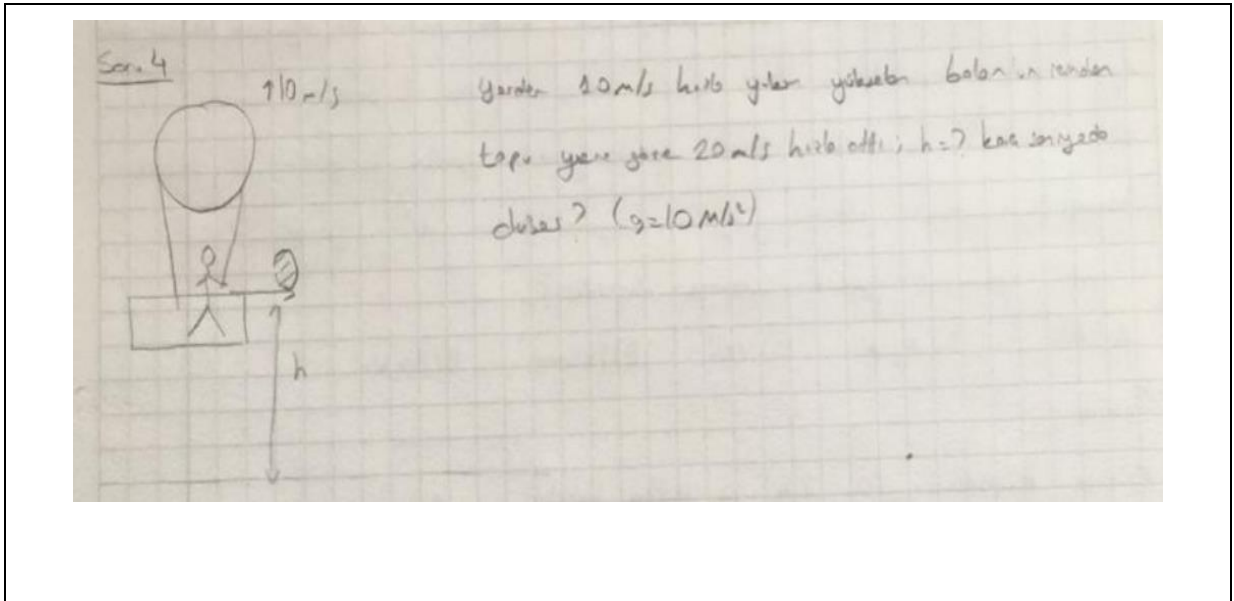 Soru 4
↑10 m/s
Yerden 10 m/s hızla yukarı yükselen balonun içinden
topu yere göre 20 m/s hızla attı; h=? kaç saniyede
düşer? (g=10 m/s²)
h